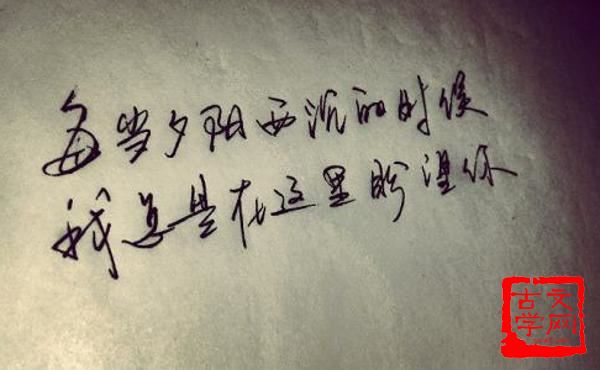 每当夕阳西沉的时候
我总是在这里盼望你
古文学网